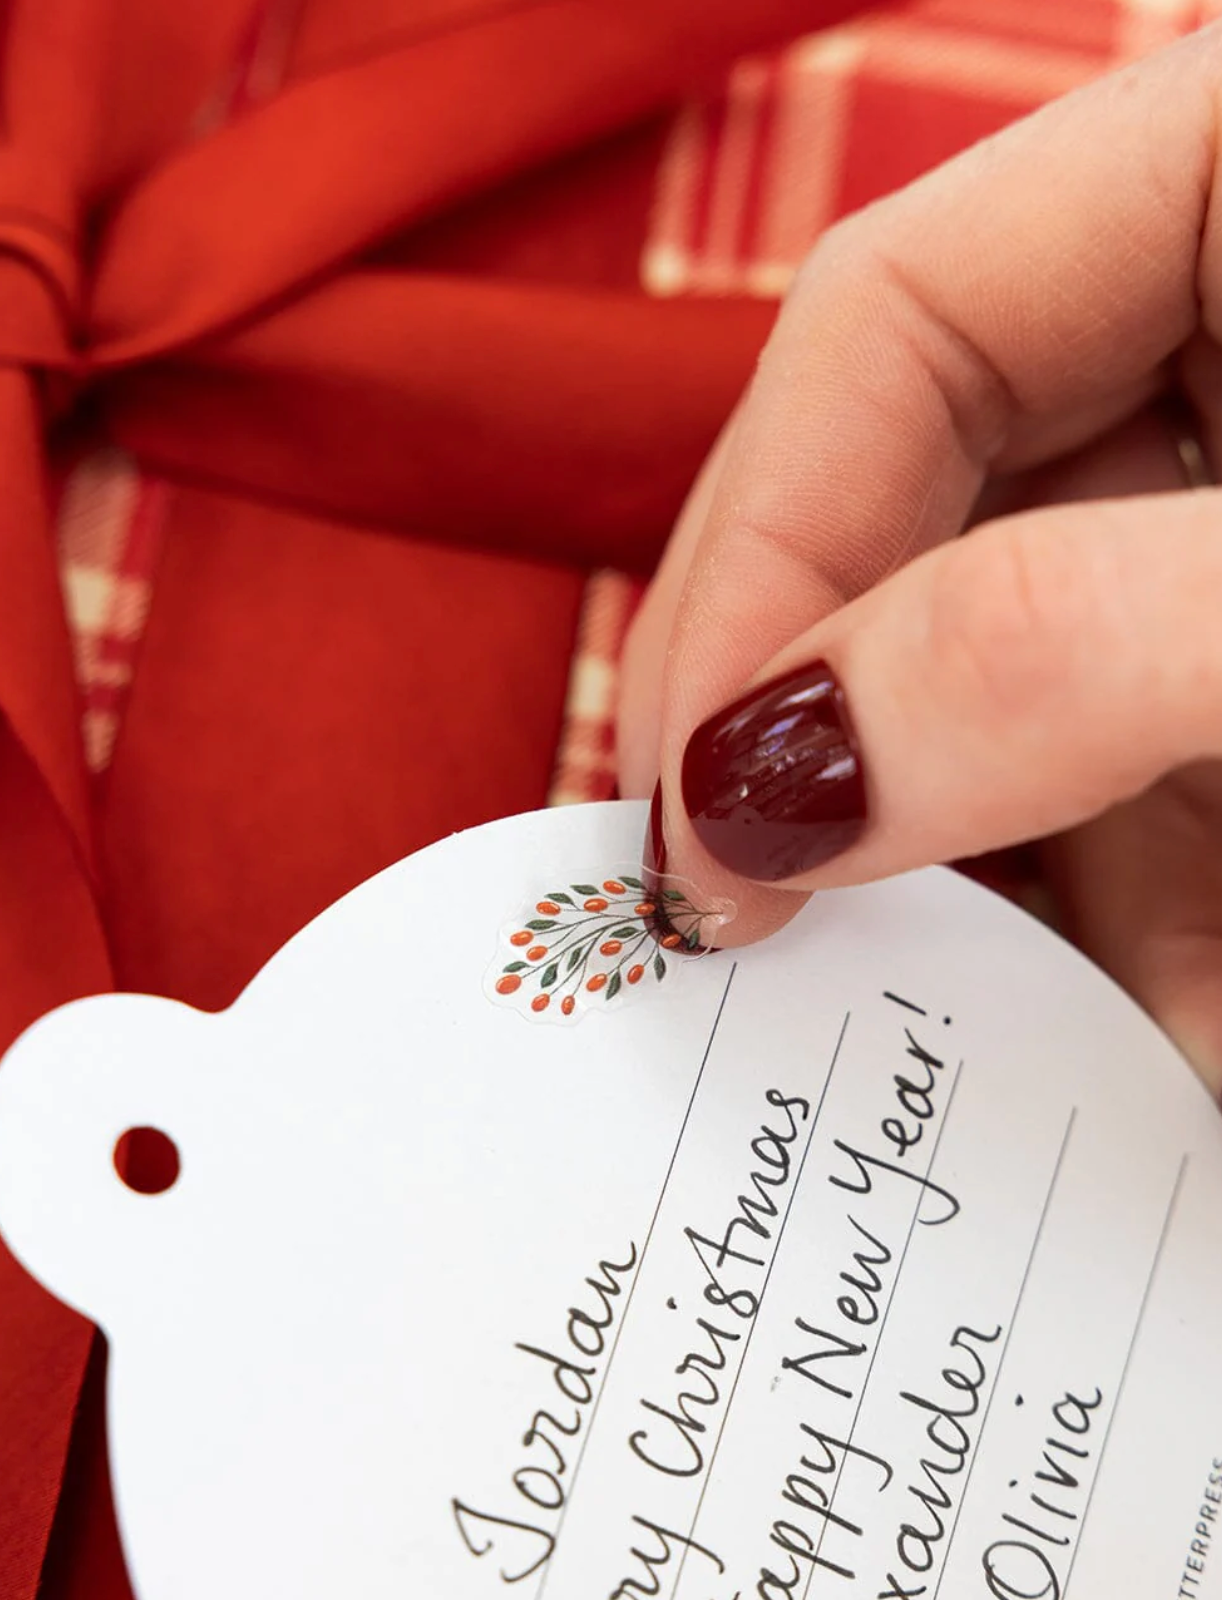 Jordan
ry Christmas
appy New Year!
xander
Olivia
TTERPRESS